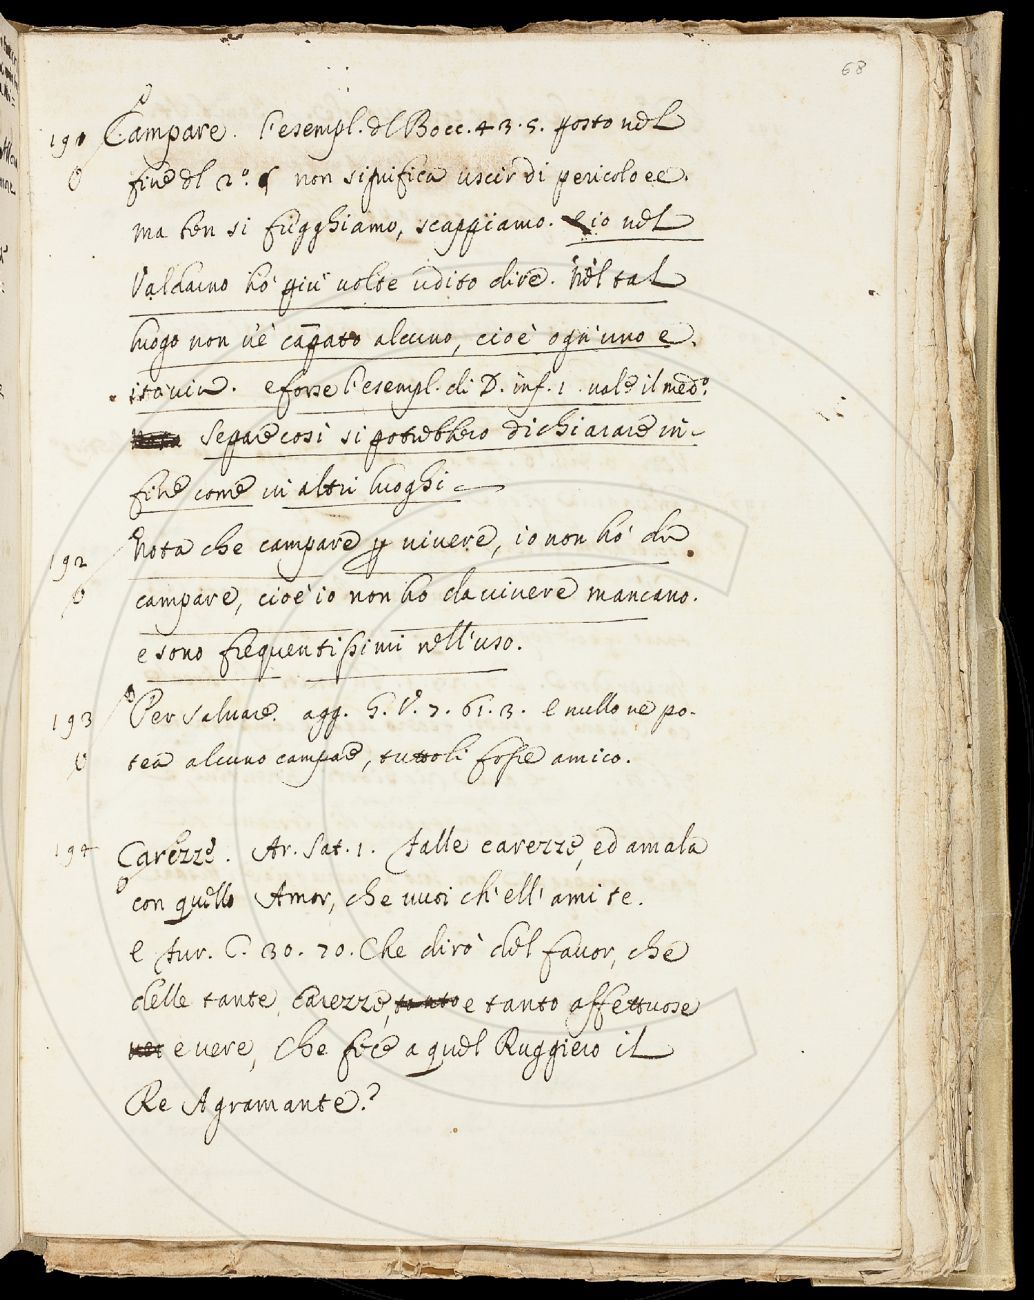 68
191 Campare. l'esempl. dl Bocc. 4 3. 5. posto nel
fine dl 2º. § non significa uscir di pericolo ec.
ma ben si fugghiamo, scappiamo. e io nel
Valdarno hò più volte udito dire. Nel tal
luogo non v'è capato alcuno, cioè ogn'uno e
ito via. e forse l'esempl. di D. inf. 1. vale il medº.
Se pare così si potrebbero dichiarare in
fine come in altri luoghi
192 Nota che campare p vivere, io non hò da
campare, cioè io non ho da vivere mancano.
e sono frequentissimi nell'uso.
193 Per salvare. agg. G. V. 7. 61. 3. E nullo ne po-
tea alcuno campare, tutto li fosse amico.
194 Carezze. Ar. Sat. 1. falle carezze, ed amala
con quello Amor, che vuoi ch'ell'ami te.
E fur. C. 30. 70. Che dirò del favor, che
delle tante carezze, tanto e tanto affettuose
e vere, che fece a quel Ruggiero il
Re Agramante.?